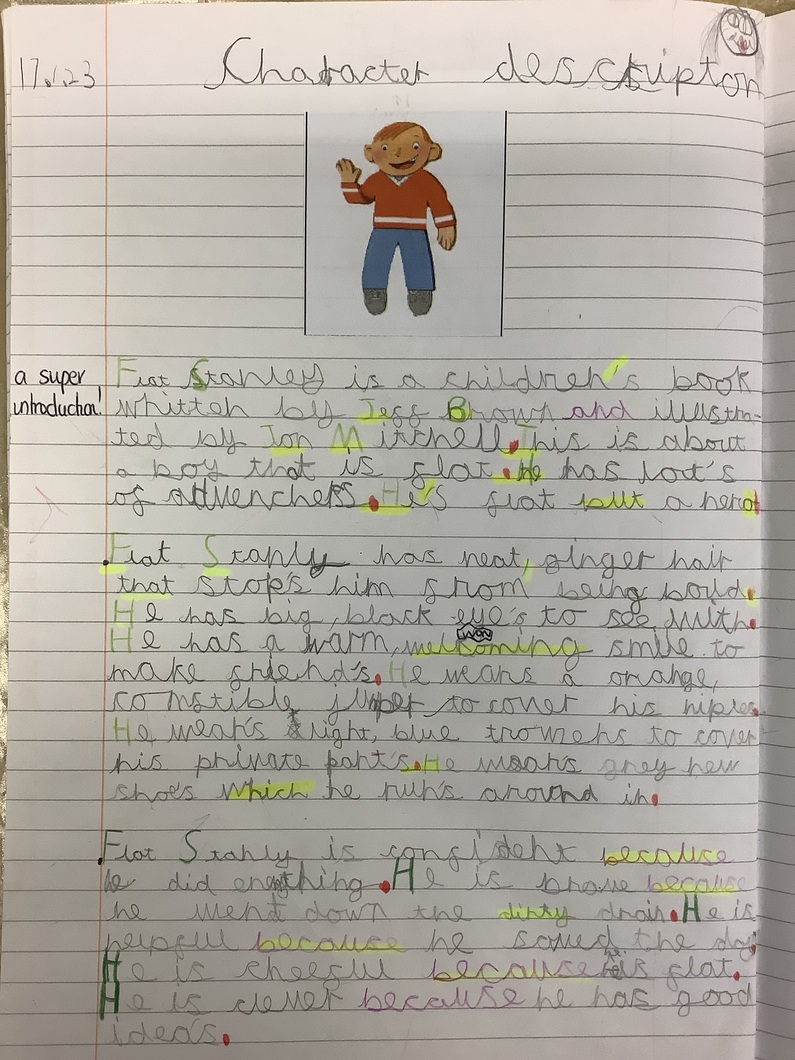 17.1.23 Character descripton
a super introduction!
Flat Stanley is a children's book
whitten by Jeff Brown and illustra-
ted by Jon Mitchell. This is about
a boy that is flat. He has lot's
of advenchers. He's flat but a hero!
Flat Stanly has neat, ginger hair
that stop's him from being bould.
He has big, black eye's to see with.
He has a warm, welcoming smile to
make friend's. He wears a orange,
comstible jumper to cover his niples.
He wear's bright, blue trowsers to cover
his private part's. He wears grey new
shoe's which he run's around in.
Flat Stanly is confident because
he did enything. He is brave because
he went down the dirty drain. He is
helpful because he saved the day.
He is cheerful because he's flat.
He is clever because he has good
idea's.